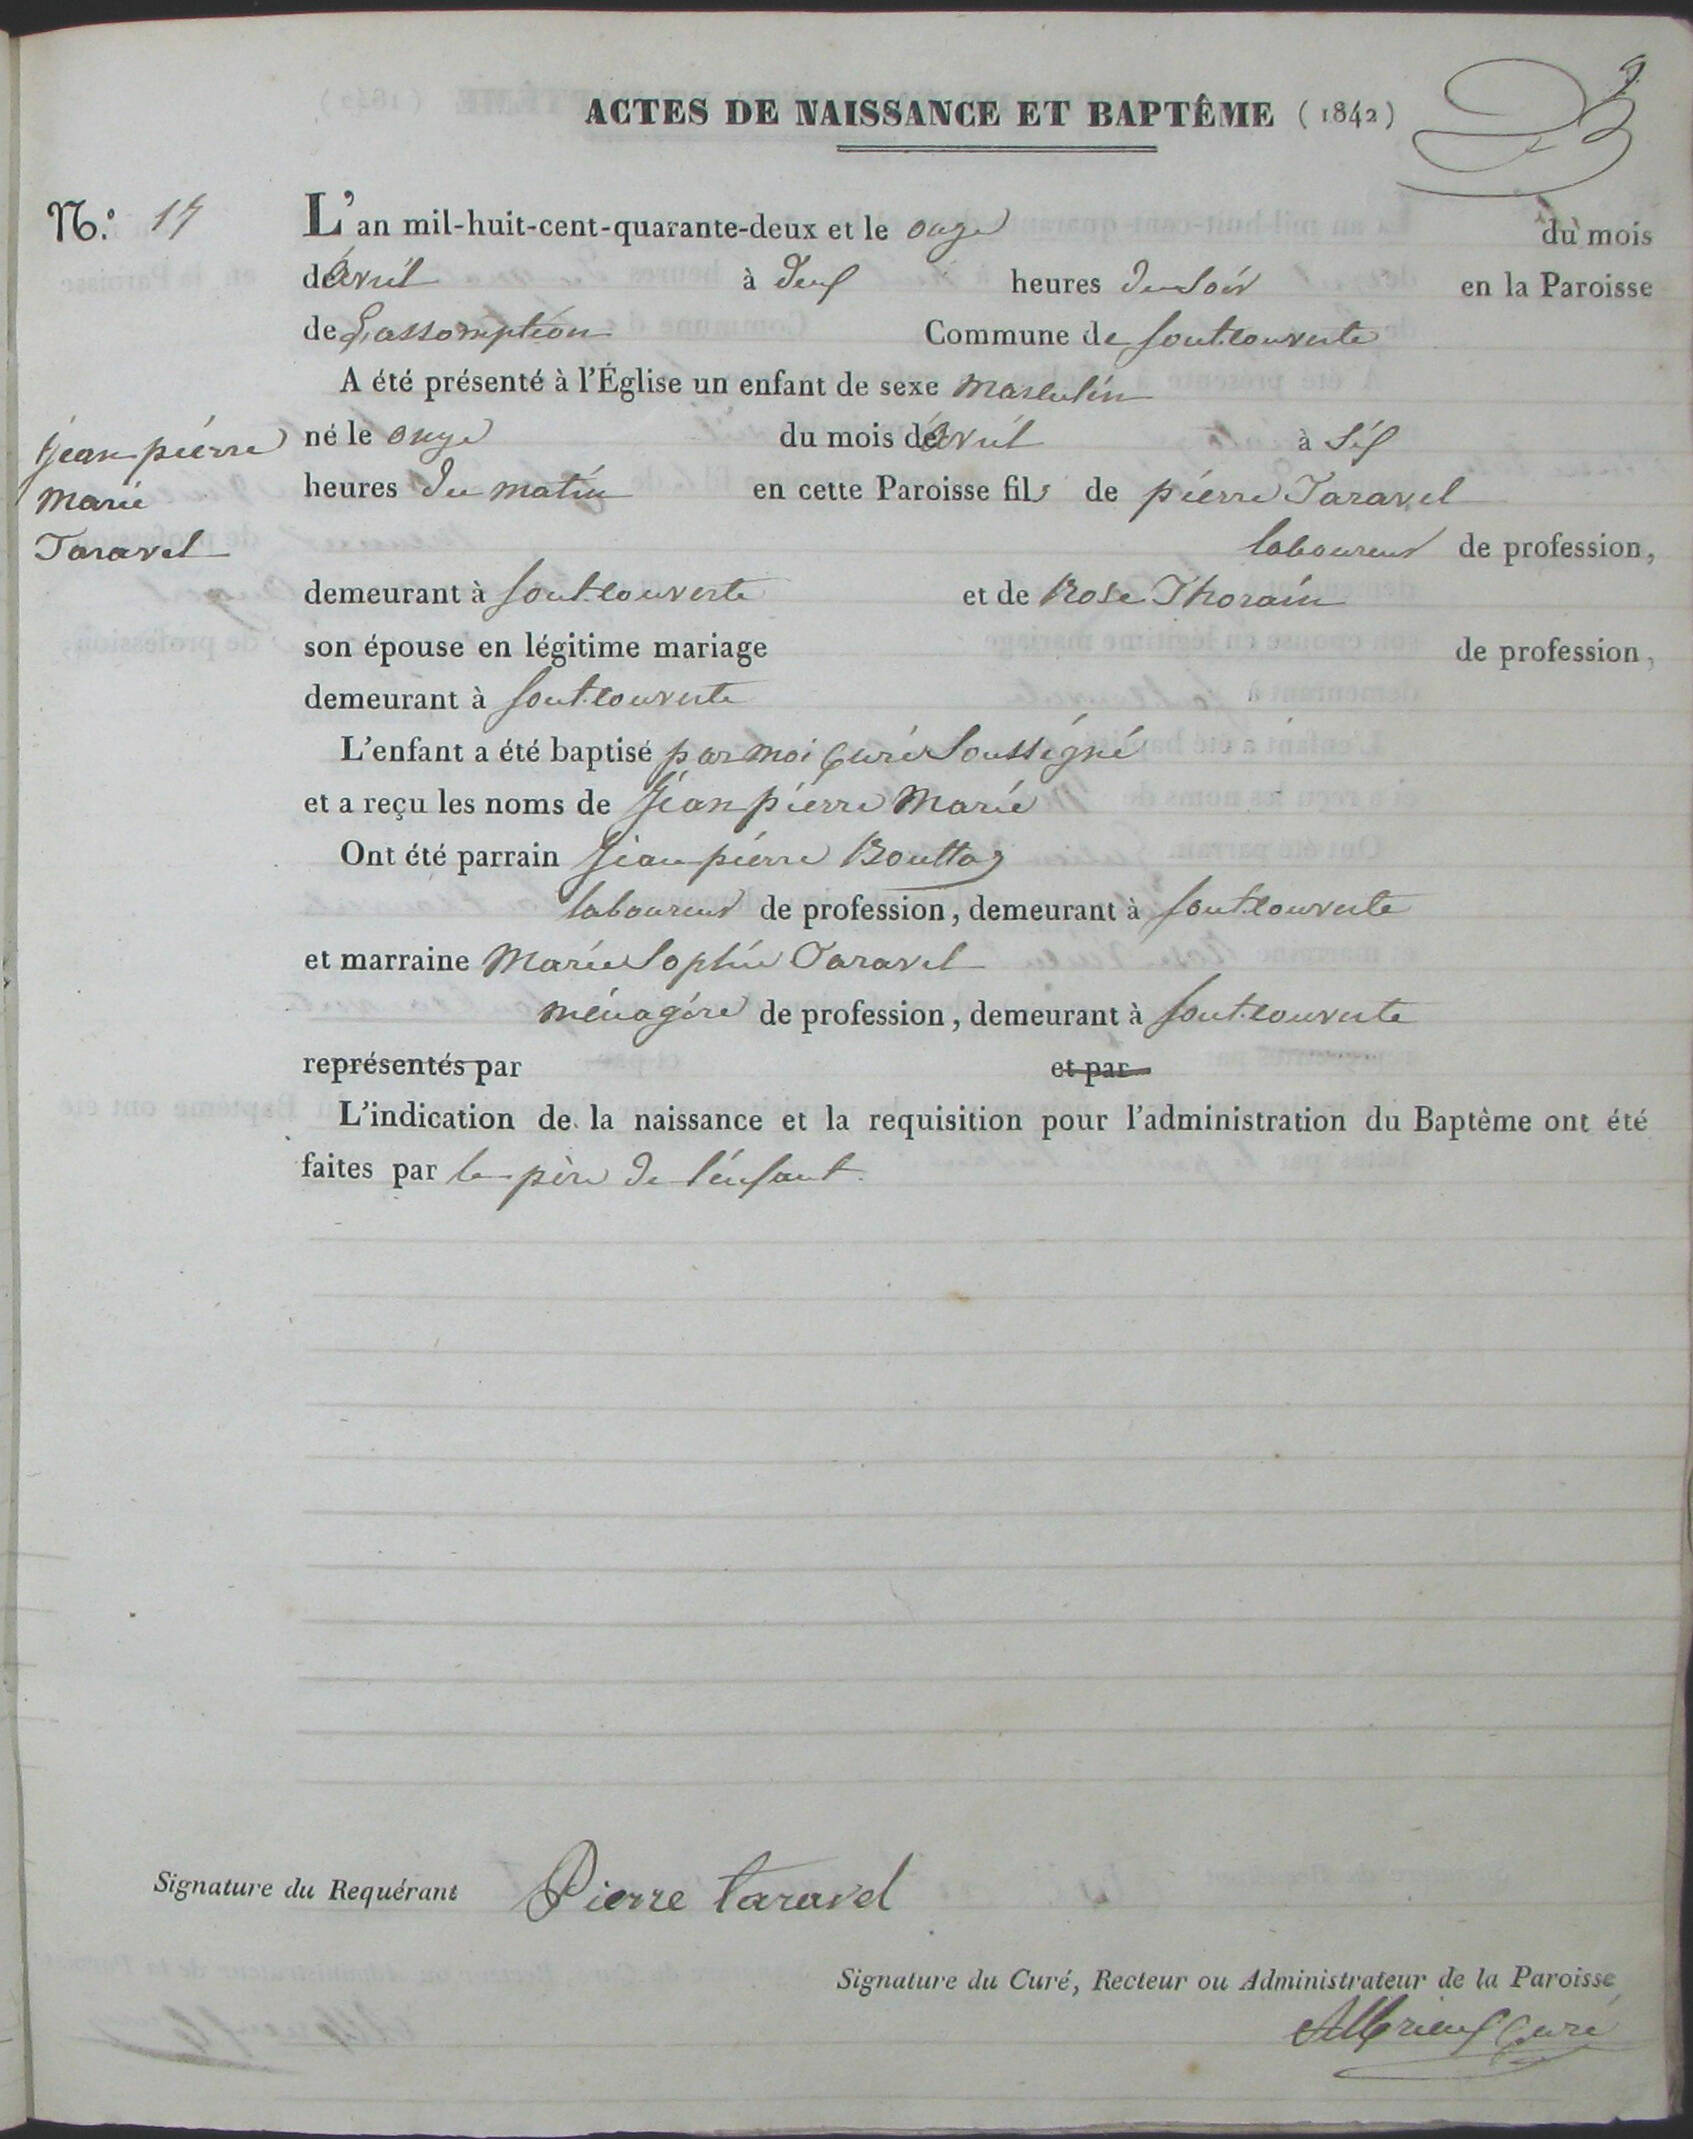 ACTES DE NAISSANCE ET BAPTÊME (1842)
N.º 17
L'an mil-huit-cent-quarante-deux et le onze du mois
de avril à deux heures du soir en la Paroisse
de L'assomption Commune de fontcouverte
A été présenté à l'Église un enfant de sexe masculin
né le onze du mois de avril à six
heures du matin en cette Paroisse fils de pierre Taravel
jean pierre
marie
Taravel
laboureur de profession,
demeurant à fontcouverte et de Rose Thorain
son épouse en légitime mariage de profession,
demeurant à fontcouverte
L'enfant a été baptisé par moi Curé Soussigné
et a reçu les noms de Jean pierre Marie
Ont été parrain Jean pierre Bouttaz
laboureur de profession, demeurant à fontcouverte
et marraine Marie Sophie Taravel
ménagère de profession, demeurant à fontcouverte
représentés par et par
L'indication de la naissance et la requisition pour l'administration du Baptême ont été
faites par le père de l'enfant.
Signature du Requérant Pierre taravel
Signature du Curé, Recteur ou Administrateur de la Paroisse
Curé